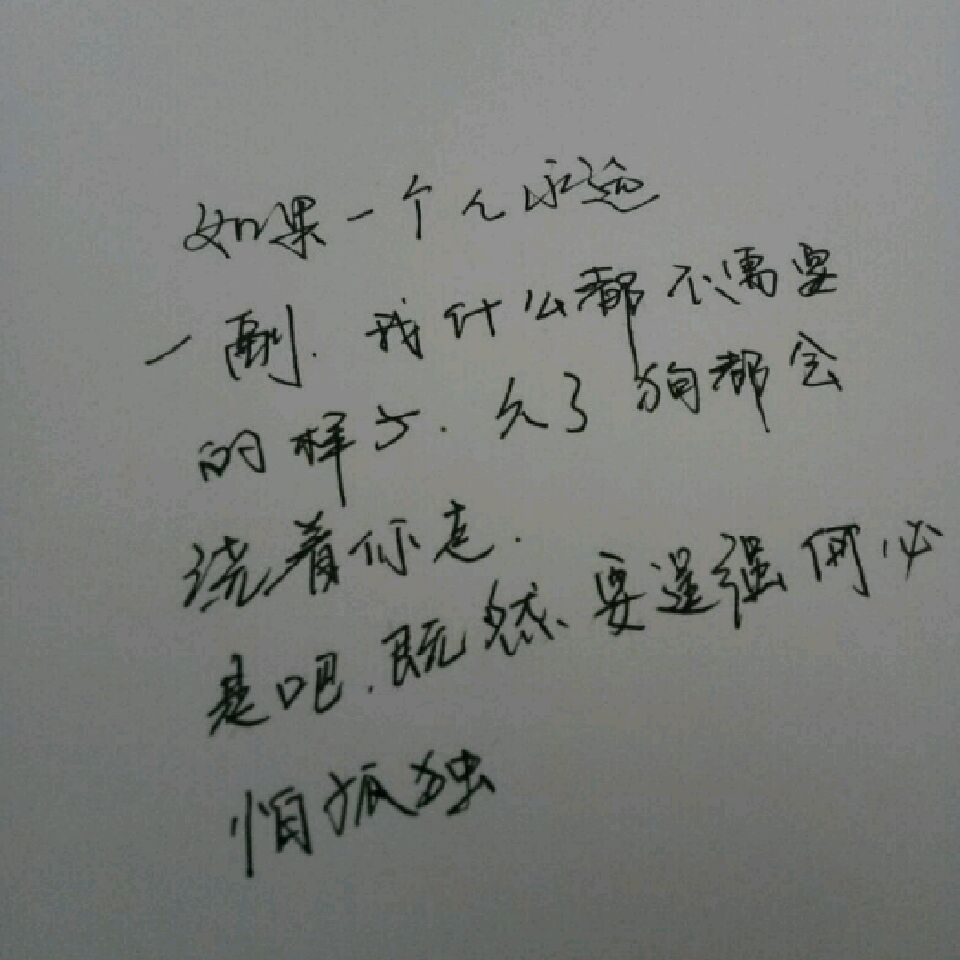 如果一个人永远
一副.我什么都不需要
的样子.久了狗都会
绕着你走.
是吧.既然要逞强何必
怕孤独